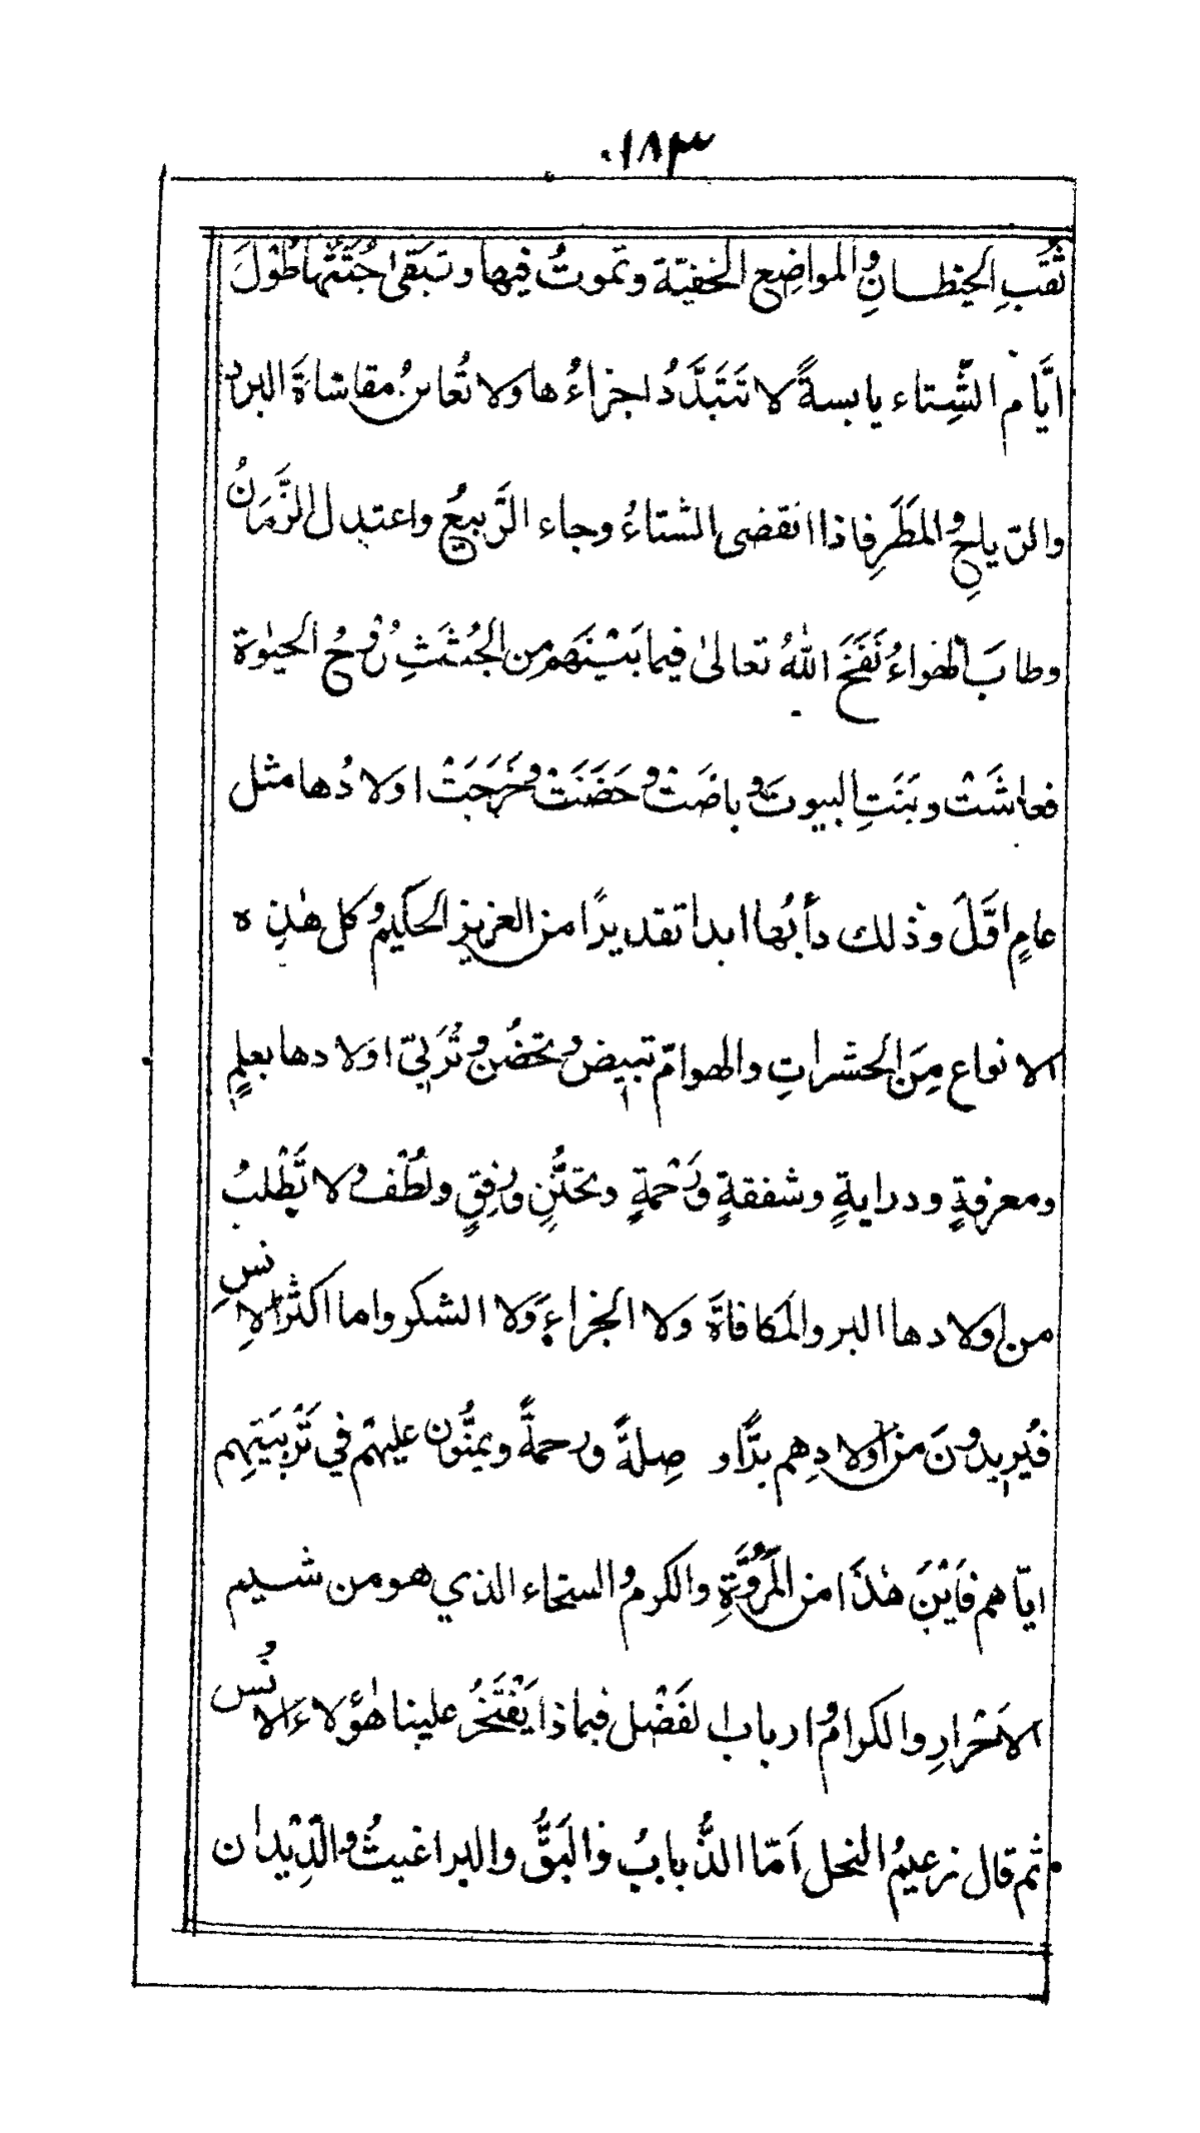 ٠١٨٣
ثُقَبِ الحِيطانِ والمواضِعِ الخفيّة وتموتُ فيها وتَبقىٰ جُثَّتُها طُوْلَ
ايَّام الشِّتاء يابسةً لا تَتَبَدَّدُ اجزاءُها ولا تُعا مقاساةَ البرد
والرّياحِ والمَطَرِ فاذا انقضى الشتاءُ وجاء الرَّبيعُ واعتدل الزَّمَانُ
وطابَ الهواءُ نَفَخَ اللّٰهُ تعالىٰ فيما بَيْنَهَم مِن الجُثَثِ رُوْحُ الحيٰوة
فعاشَتْ وبَنَتِ البيوتَ وباضَتْ وحَضَنَتْ وخَرَجَتْ اولادُها مثل
عامٍ اوَّلَ وذٰلك دأبُها ابدا تقديرًا من العزيز الحكيم وكل هٰذِه
الانواع مِنَ الحشراتِ والهوامّ تبيض وتحضُن وتُرَبيّ اولادها بعلمٍ
ومعرفةٍ ودرايةٍ وشفقةٍ ورَحْمةٍ وتحنُّنٍ ورِفقٍ ولُطْف ولا تَطْلبُ
من اولادها البر والمَكافاةَ ولا الجزاءِ وَلا الشكر واما اكثرُ الاِنسِ
فيُريدونَ من اولادِهم بِرًّا و صِلةً ورحمةً ويمنُّون عليهْم في تَرْبِيَتِهِم
ايّاهم فاَيْنَ هٰذَا من المُرُوَّةِ والكرم والسخاء الذي هو من شيم
الاَحْرارِ والكرام وارباب لفَضْل فبماذا يَفْتَخرُ علينا هٰؤلاءِ الانُس
ثم قال زعيمُ النحل اَمّا الذُّبابُ والبَقُّ والبراغيثُ والدِّيْدان